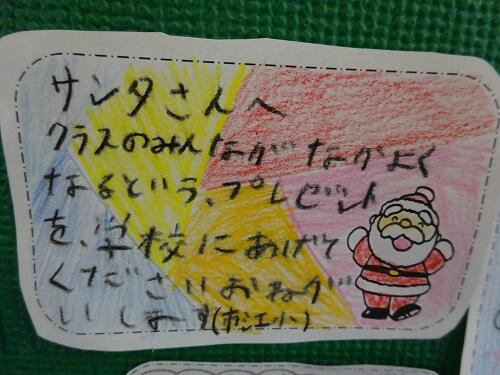 サンタさんへ
クラスのみんながながよく
なるという、プレゼント
を、学校にあげて
ください おねが
いします(